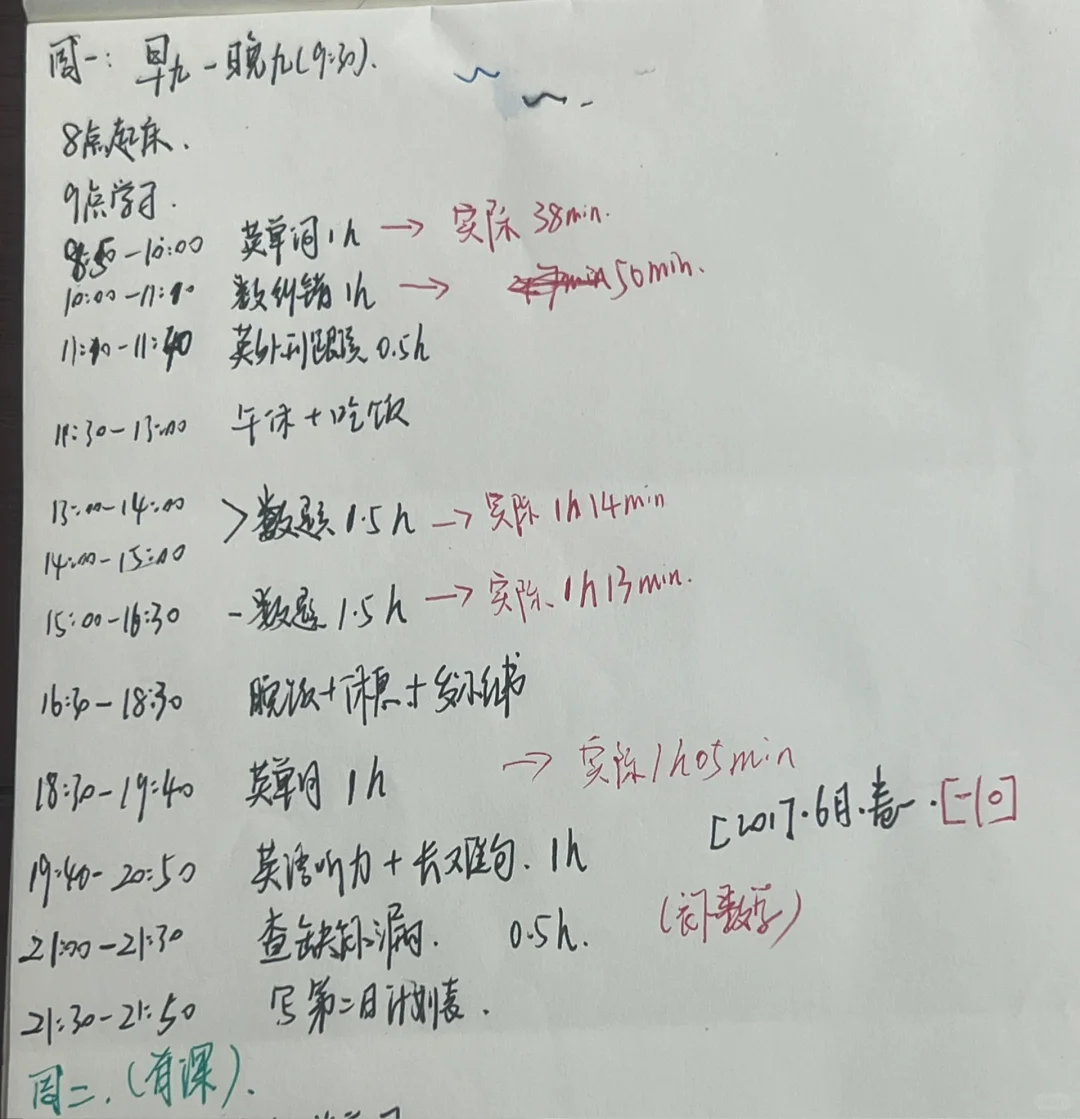 周一：早九-晚九(9:30).
8点起床.
9点学习.
8:50-10:00 英单词1h → 实际 38min.
10:00-11:10 数纠错1h → 50min.
11:10-11:40 英外刊跟读0.5h
11:30-13:00 午休+吃饭
13:00-14:00
14:00-15:00 >数题1.5h → 实际 1h14min
15:00-16:30 -数题1.5h → 实际、1h13min.
16:30-18:30 晚饭+休息+发小红书
18:30-19:40 英单词 1h → 实际1h05min
[2017.6月.卷一.[-10]
19:40-20:50 英语听力+长难句. 1h
21:00-21:30 查缺补漏. 0.5h. (补数学)
21:30-21:50 写第二日计划表.
周二.(有课).